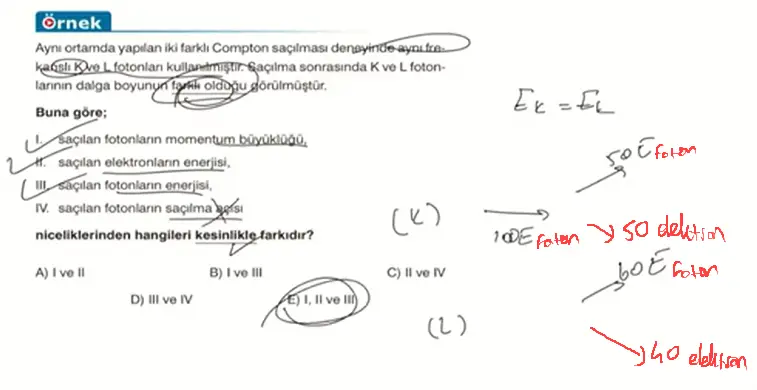 Örnek
Aynı ortamda yapılan iki farklı Compton saçılması deneyinde aynı fre-
kanslı K ve L fotonları kullanılmıştır. Saçılma sonrasında K ve L foton-
larının dalga boyunun farklı olduğu görülmüştür.
Buna göre;
I. saçılan fotonların momentum büyüklüğü,
II. saçılan elektronların enerjisi,
III. saçılan fotonların enerjisi,
IV. saçılan fotonların saçılma açısı
niceliklerinden hangileri kesinlikle farkıdır?
A) I ve II B) I ve III C) II ve IV
D) III ve IV E) I, II ve III
EK = EL
(K) 100E foton
50E foton
50 elektron
(L)
60E foton
40 elektron